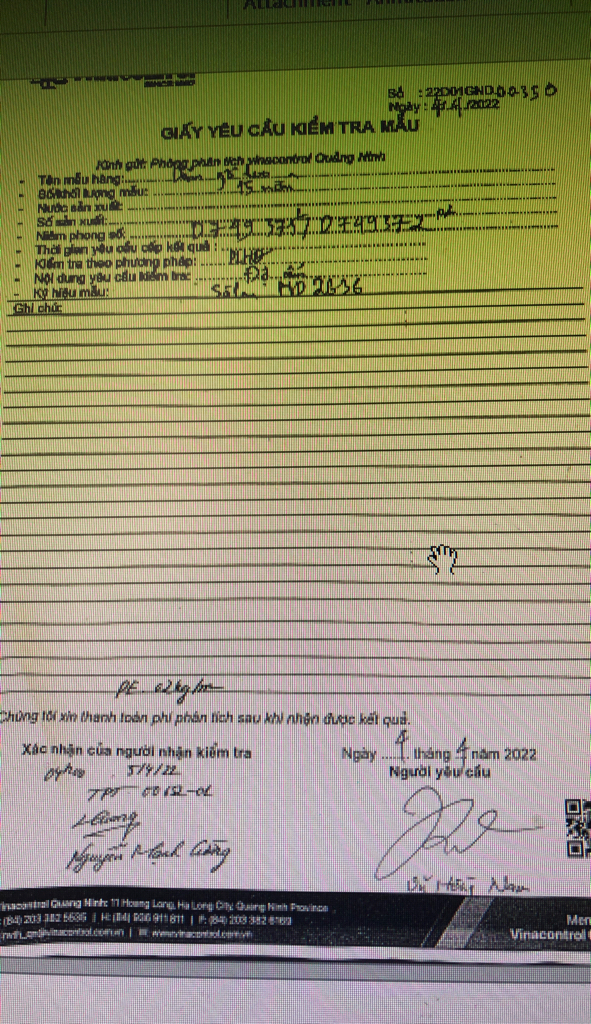 Attachment
SINCE 1957
Số : 22D01GND.00350
Ngày : 4/4/2022
GIẤY YÊU CẦU KIỂM TRA MẪU
Kính gửi: Phòng phân tích vinacontrol Quảng Ninh
- Tên mẫu hàng: Dăm gỗ
- Số/khối lượng mẫu: 15 mẫu
- Nước sản xuất:
- Số sản xuất:
- Niêm phong số: 0749373 / 0749372
- Thời gian yêu cầu cấp kết quả :
- Kiểm tra theo phương pháp:
- Nội dung yêu cầu kiểm tra: Độ ẩm
- Ký hiệu mẫu: MD 2636
Ghi chú:
PE. 02kg/
Chúng tôi xin thanh toán phí phân tích sau khi nhận được kết quả.
Xác nhận của người nhận kiểm tra
5/4/22
TPT 00152-01
Nguyễn Mạnh Cường
Ngày ..4.. tháng 4 năm 2022
Người yêu cầu
Nam
Vinacontrol Quang Ninh: 11 Hoang Long, Ha Long City, Quang Ninh Province
(84) 203 382 5535 | H: (84) 936 911 811 | F: (84) 203 382 6169
@vinacontrol.com.vn | W: www.vinacontrol.com.vn
Vinacontrol